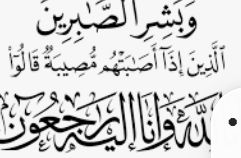 وَبَشِّرِ الصَّابِرِينَ
الَّذِينَ إِذَا أَصَابَتْهُم مُّصِيبَةٌ قَالُوا
لله وَإِنَّا إِلَيْهِ رَاجِعُونَ